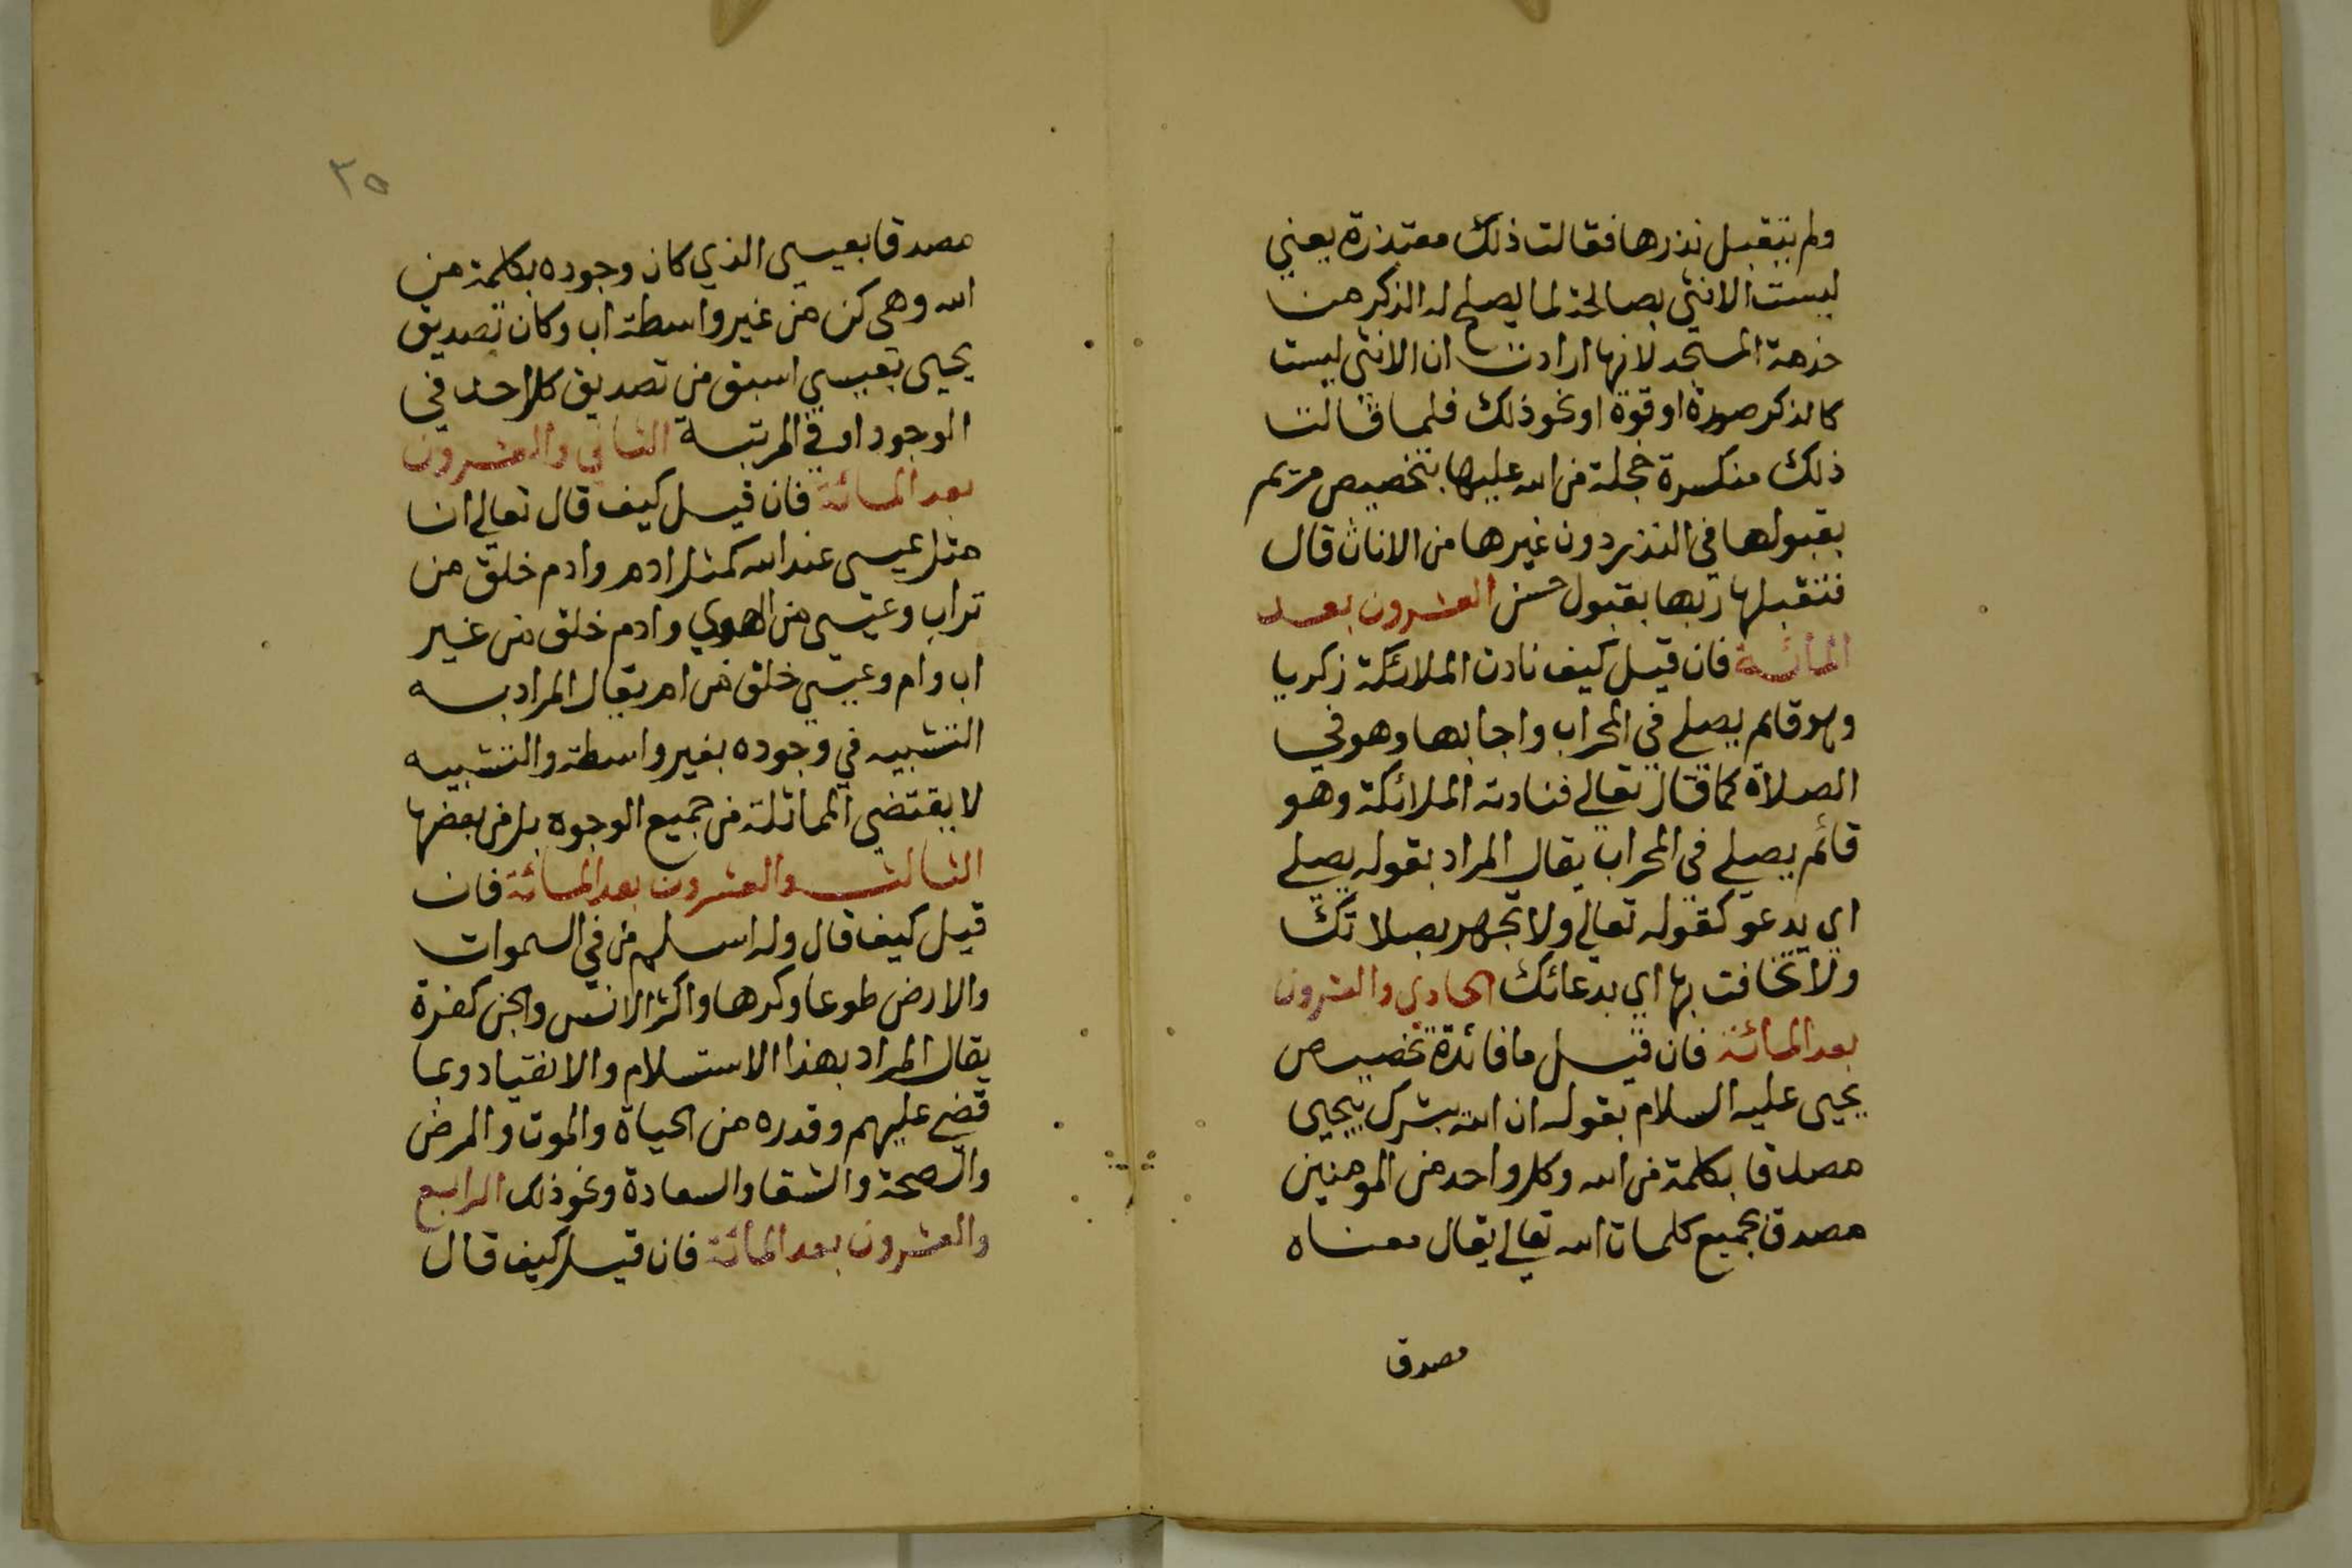 ولم يتقبل نذرها فقالت ذلك معتذرة يعني
ليست الانثى بصالحة لما يصلح له الذكر من
خدمة المسجد لانها ارادت ان الانثى ليست
كالذكر صورة او قوة او نحو ذلك فلما قالت
ذلك منكسرة خجلة من الله عليها بتخصيص مريم
بقبولها في النذر دون غيرها من الاناث قال
فتقبلها ربها بقبول حسن العشرون بعد
المائة فان قيل كيف نادت الملائكة زكريا
وهو قائم يصلي في المحراب واجابها وهو في
الصلاة كما قال تعالى فنادته الملائكة وهو
قائم يصلي في المحراب يقال المراد بقوله يصلي
اي يدعو كقوله تعالى ولا تجهر بصلاتك
ولا تخافت بها اي بدعائك الحادي والعشرون
بعد المائة فان قيل ما فائدة تخصيص
يحيى عليه السلام بقوله ان الله يبشرك بيحيى
مصدقا بكلمة من الله وكل واحد من المومنين
مصدق بجميع كلمات الله تعالى يقال معناه
مصدقا
٣٥
مصدقا بعيسى الذي كان وجوده بكلمة من
الله وهي كن من غير واسطة اب وكان تصديق
يحيى بعيسى اسبق من تصديق كل احد في
الوجود او في المرتبة الثاني والعشرون
بعد المائة فان قيل كيف قال تعالى ان
مثل عيسى عند الله كمثل ادم وادم خلق من
تراب وعيسى من الهوي وادم خلق من غير
اب وام وعيسى خلق من ام يقال المراد به
التشبيه في وجوده بغير واسطة والتشبيه
لا يقتضي المماثلة من جميع الوجوه بل من بعضها
الثالث والعشرون بعد المائة فان
قيل كيف قال وله اسلم من في السموات
والارض طوعا وكرها واكثر الانس والجن كفرة
يقال المراد بهذا الاستسلام والانقياد وبما
قضى عليهم وقدره من الحياة والموت والمرض
والصحة والشقا والسعادة ونحو ذلك الرابع
والعشرون بعد المائة فان قيل كيف قال